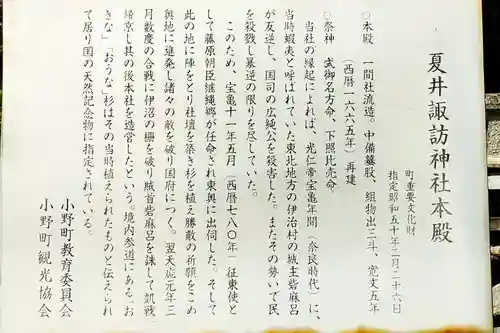 夏井諏訪神社本殿
町重要文化財
指定昭和五十年二月二十六日
○本殿　一間社流造。中備蟇股、組物出三斗、寛文五年
(西暦一六六五年)再建
○祭神　武御名方命、下照比売命
当社の縁起によれば、光仁帝宝亀年間(奈良時代)に、
当時蝦夷と呼ばれていた東北地方の伊治村の城主砦麻呂
が反逆し、国司の広純公を殺害した。またその勢いで民
を殺戮し暴逆の限りを尽していた。
このため、宝亀十一年五月(西暦七八〇年)征東使と
して藤原朝臣継縄郷が任命され東奥に出伺した。そして
此の地に陣をとり社壇を築き杉を植え勝敵の祈願をこめ
奥地に進発し諸々の敵を破り国府につく。翌天応元年三
月数度の合戦に伊沼の柵を破り賊首砦麻呂を誅して凱戦
帰京し其の後本社を造営したという。境内参道にある「お
きな」「おうな」杉はその当時植えられたものと伝えられ
て居り国の天然記念物に指定されている。
小野町教育委員会
小野町観光協会